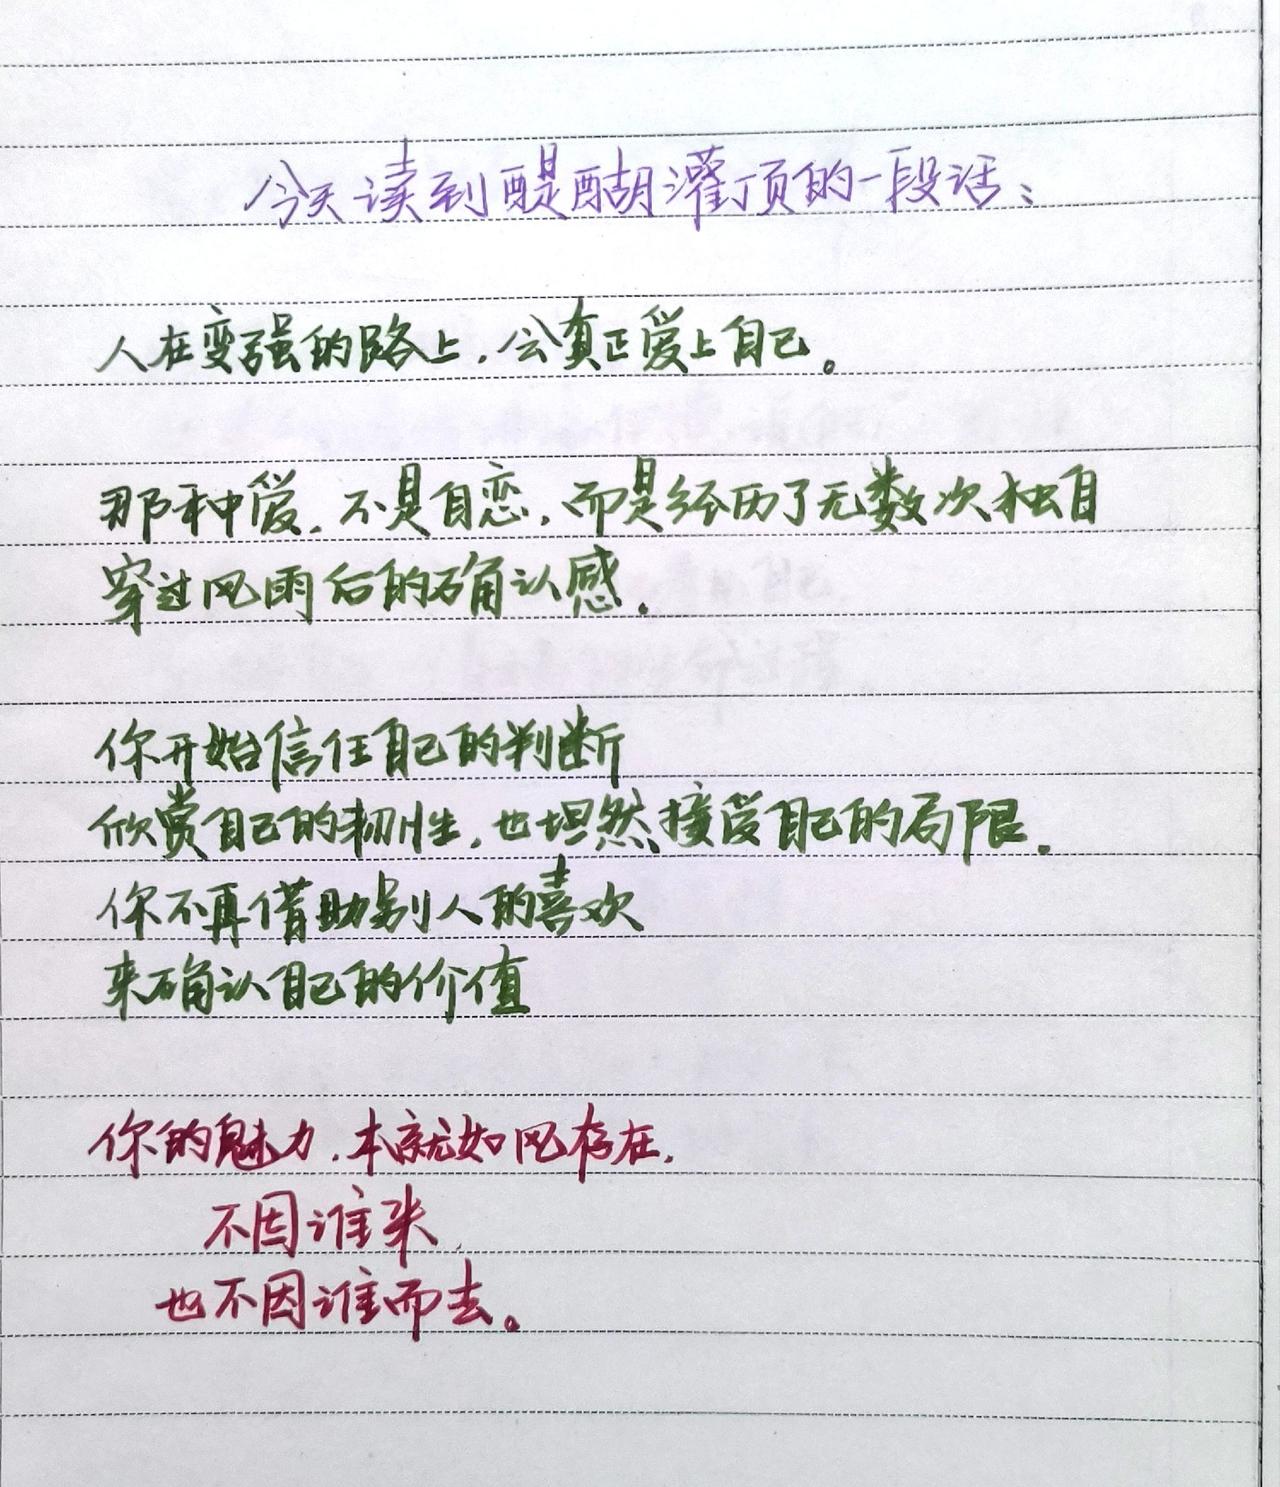 今天读到醍醐灌顶的一段话：
人在变强的路上，会真正爱上自己。
那种爱，不是自恋，而是经历了无数次独自
穿过风雨后的确认感。
你开始信任自己的判断
欣赏自己的韧性，也坦然接受自己的局限。
你不再借助别人的喜欢
来确认自己的价值
你的魅力，本就如风存在，
不因谁来，
也不因谁而去。